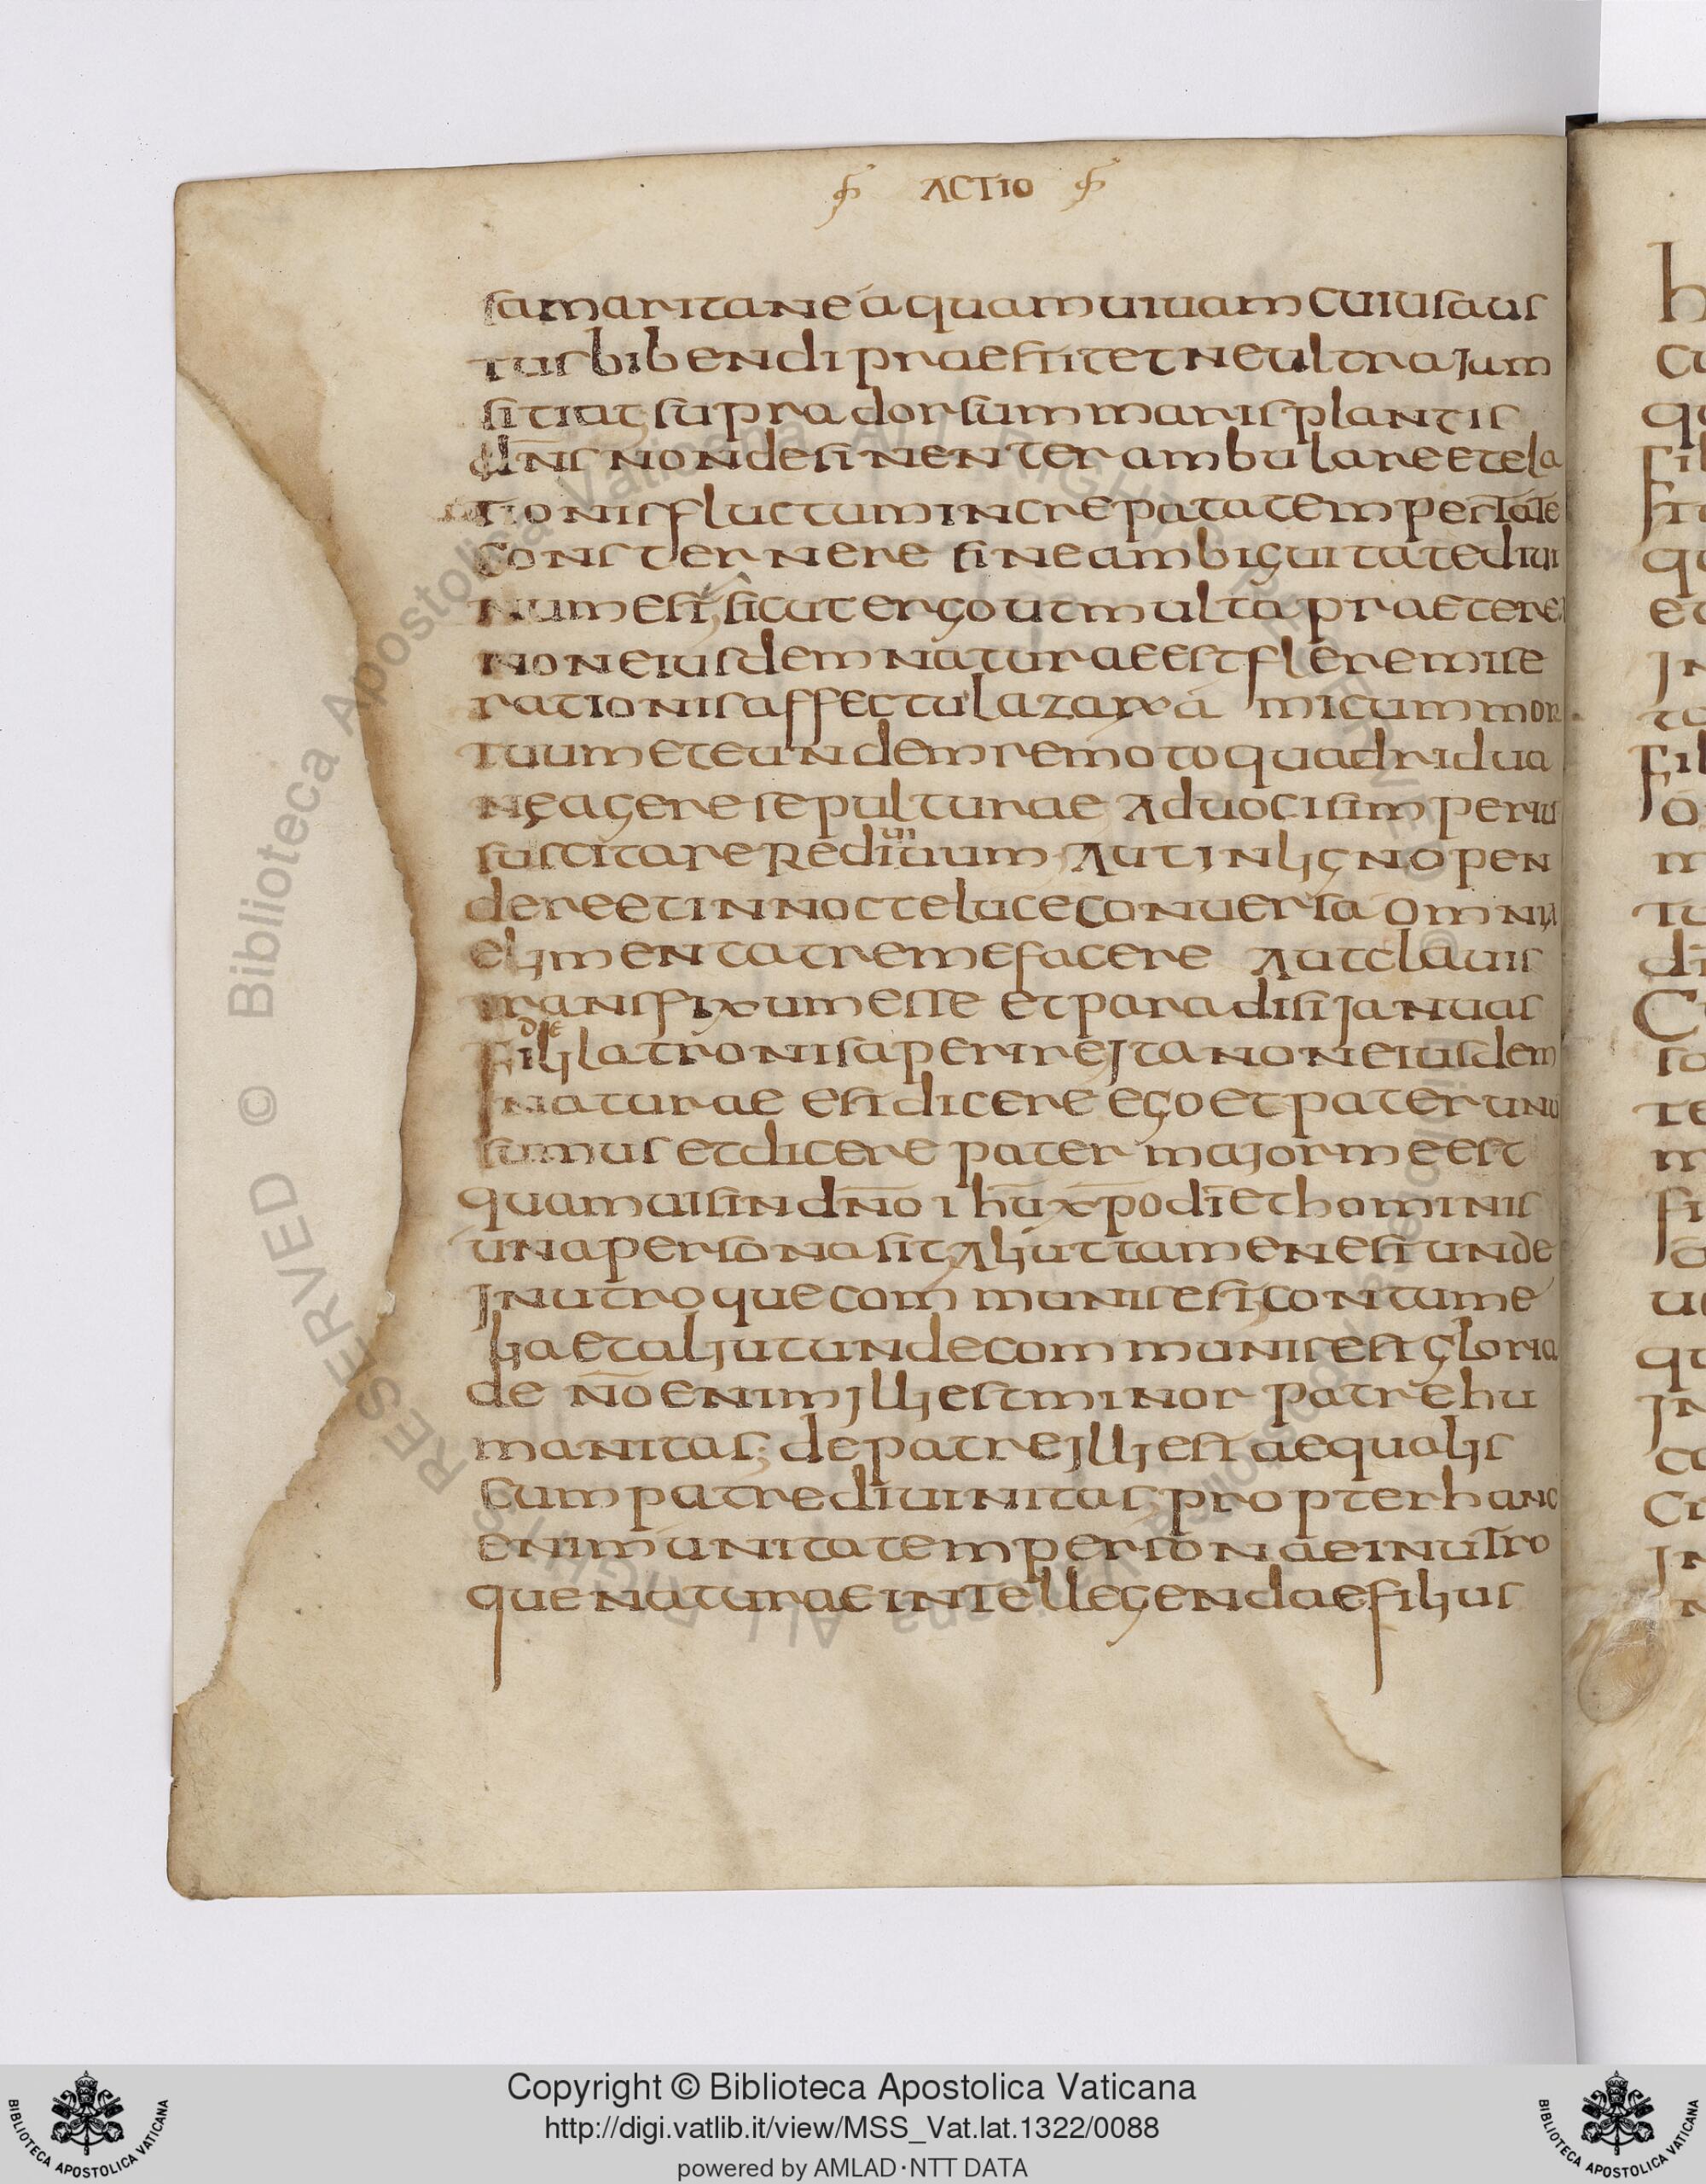 ACTIO
samaritane aquam uiuam cuius aus
tus bibendi praestitet ne ultra jam
sitiat supra dorsum maris plantis
dn̄s non desinenter ambulare et ela
tionis fluctum increpata tempestate
consternere sine ambiguitate diui
num est sicut ergo ut multa praetere
non eiusdem naturae est flere mise
rationis affectu lazarxa micum mor
tuum et eundem remoto quadridua
ne agere sepulturae ad uocis imperiu
suscitare rediuiuum aut in ligno pen
dere et in nocte luce conuersa omnia
elimenta tremefacere aut clauis
transfixum esse et paradisi januas
fidei latronis aperire jta non eiusdem
naturae est dicere ego et pater unu
sumus et dicere pater major me est
quamuis in dn̄o ihū xp̄o dī et hominis
una persona sit aliut tamen est unde
jn utroque communis est contume
lia et aliut unde communis est gloria
de nō enim jlli est minor patre hu
manitas; de patre jlli est aequalis
cum patre diuinitas propter hanc
enim unitatem personae in utro
que naturae intellegendae filius
Copyright © Biblioteca Apostolica Vaticana
http://digi.vatlib.it/view/MSS_Vat.lat.1322/0088
powered by AMLAD·NTT DATA